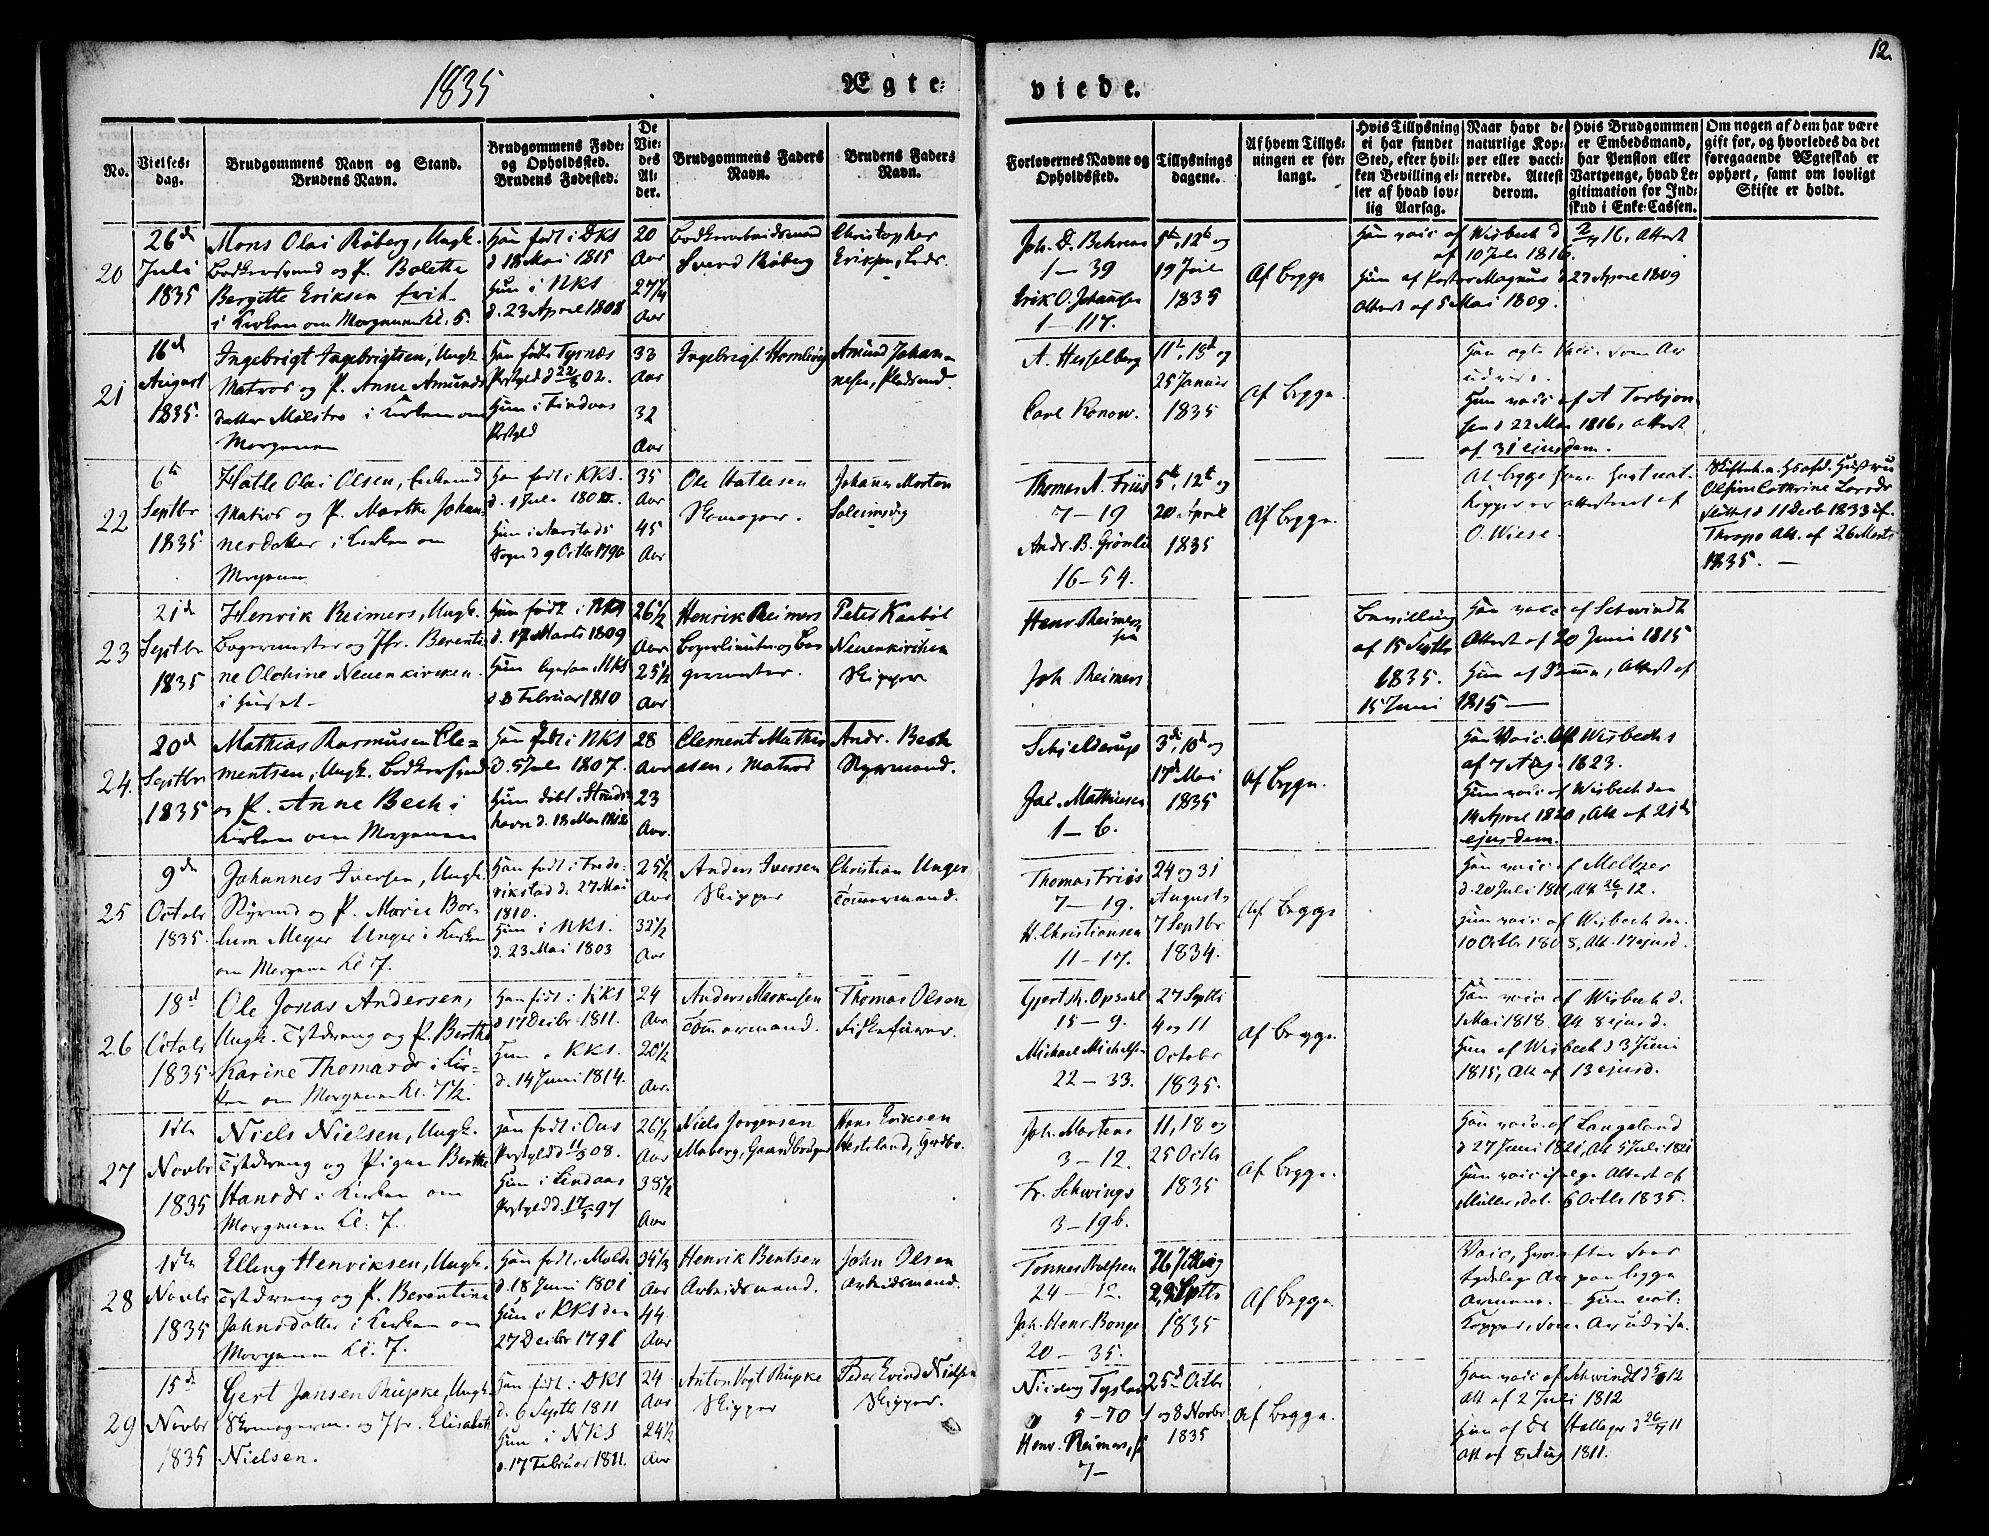 12.
1835
Ægte-
viede.
No.
Vielses-
dag.
Brudgommens Navn og Stand.
Brudens Navn.
Brudgommens Føde-
og Opholdssted.
Brudens Fødested.
De
Vie-
des
Al-
der.
Brudgommens Faders
Navn.
Brudens Faders
Navn.
Forlovernes Navne og
Opholdssted.
Tillysnings
dagene.
Af hvem Tillys-
ningen er for-
langt.
Hvis Tillysning
ei har fundet
Sted, efter hvil-
ken Bevilling el-
ler af hvad lov-
lig Aarsag.
Naar havt de
naturlige Kop-
per eller vacci-
nerede. Attest
derom.
Hvis Brudgommen
er Embedsmand,
har Pension eller
Vartpenge, hvad Le-
gitimation for Ind-
skud i Enke-Cassen.
Om nogen af dem har være
gift før, og hvorledes da det
foregaaende Ægteskab er
ophørt, samt om lovligt
Skifte er holdt.
20
26de
Juli
1835
Mons Olai Røberg, Ungk.
Bødkersvend og P. Bolette
Bergitte Eriksen
i Kirken om Morgenen Kl. 5.
Han født i DKS
d 18 Mai 1815
Hun i NKS
d. 23 April 1808
20
Aar
27¼
Aar
Bødkerarbeidsmand
Svend Røberg
Christopher
Eriksen, Lods.
Joh. D. Behrens
1 – 39
Erik O. Johansen
1 – 117.
5te, 12te og
19 Juli
1835
Af begge
Han vacc. af Wisbech d 16, Attest
af 10 Juli 1816.
Hun af Pastor Magnus d 27 April 1809
Attest af 5 Mai 1809.
21
16de
August
1835.
Ingebrigt Ingebrigtsen, Ungk.
Matros og P. Anne Amunds
datter Mølstre i Kirken om
Morgenen
Han født i Tysnæs
Prstgjeld d 22/8 02.
Hun i Findaas
Prstgjld
33
Aar
32
Aar
Ingebrigt Hornlevig
Amund Johan-
nesen, Pladsmd.
A. Hesselberg
Carl Konow.
11te, 18de og
25 Januar
1835
Af begge.
Han ægte Vacc. som Ar
udvise.
Hun vacc. af A Torbjørn
sen d 22 Mai 1816, Attest
af 31 ejusdem.
22
6te
Septbr
1835
Hatle Olai Olsen, Enkemd
Matros og P. Marthe Johan-
nesdatter i Kirken om
Morgenen
Han født i KKS.
d. 1 Juli 1800.
Hun i Aarstads
Sogn d 9 Octbr 1790
35
Aar
45
Aar
Ole Hatlesen
Skomager.
Johannes Morten
Soleimsvig
Thomas A. Friis
7 – 19
Andr. B. Grønlie
16 – 54.
5te, 12te og
20 April
1835
Af begge.
At begge have havt nat.
Kopper er attesteret af
O. Wiese.
Olsine Cathrine Larsdr
sluttet d 11 Decb 1833 af
Att. af 26 Marts
1835. –
23
21de
Septbr
1835
Henrik Reimers, Ungk.
Bagermester og Jfr. Berenti-
ne Olohine Neuenkirchen.
i Huset –
Han født i NKS
d. 17 Marts 1809
Hun ligesaa NKS
d 8 Februar 1810
26½
Aar
25½
Aar
Henrik Reimers
Borgerlieutn og Ba-
germester.
Peter Kaabøl
Neuenkirchen
Skipper
Henr Reimers
sen
Joh. Reimers
Bevilling
af 15 Septbr
1835.
Han vacc. af Schwindt
Attest af 20 Junii 1815
Hun af , Attest af
15 Juni 1815 –
24.
20de
Septbr
1835
Mathias Rasmusen Cle-
mentsen, Ungk. Bødkersvend
og P. Anne Bech i
Kirken om Morgenen
Han født i NKS
d. 5 Juli 1807.
Hun døbt i Strids-
havn d. 13 Mai 1812
28
Aar
23
Aar.
Clement Mathi-
asen, Matros
Andr. Bech
Styrmand.
Schjelderup
Jac. Mathiesen
1 – 6.
3die, 10de og
17de Mai
1835
Af begge.
Han Vacc. Att Wisbechs
af 7 Aug. 1823.
Hun vacc. af Wisbech den
14 April 1820, Att af 21de
ejusdem.
25
9de
Octobr
1835.
Johannes Iversen, Ungk.
Styrmd og P. Marie Bor-
lum Meyer Unger i Kirken
om Morgenen Kl. 7.
Han født i Frede-
rikstad d. 27 Mai
1810.
Hun i NKS.
d. 23 Mai 1803
25½
Aar
32½
Aar
Anders Iversen
Skipper
Christian Unger
Tømmermand.
Thomas Friis
7 – 19.
H. Christiansen
11 – 17.
24 og 31
August
7 Septbr
1834.
Af begge
Han vacc. af Meltzer
d. 20 Juli 1811, Att 26/ 12.
Hun vacc. af Wisbech den
10 Octbr 1808, Att. 17 ejusd.
26
18de
Octobr
1835.
Ole Jonas Andersen,
Ungk. Tjstdreng og P. Berthe
Karine Thomasdr i Kir-
ken om Morgenen Kl. 7½.
Han født i KKS
d 17 Decbr 1811.
Hun i KKS.
d. 14 Juni 1814.
24
Aar
20½
Aar.
Anders Markusen
Tømmermand.
Thomas Olsen
Fiskefører.
Gjert M. Opdahl
15 – 9.
Michael Michelsen
22 – 33.
27 Septbr
4 og 11
Octobr
1835.
Af begge.
Han vacc af Wisbech d.
1 Mai 1818. Att 8 ejusd.
Hun af Wisbech d 3 Juni
1815, Att af 13 ejusd.
27
1ste
Novbr
1835
Niels Nielsen, Ungk.
Tjstdreng og Pigen Berthe
Hansdr i Kirken om
Morgenen Kl. 7.
Han født i Ous
Prstgjeld d. 11/3 08.
Hun i Lindaas
Prstgjeld d. 17/5 97
26½
Aar
38½
Aar
Niels Jørgensen
Moberg, Gaardbruger
Hans Eriksen
Hestland, Grdbr.
Joh. Martens
3 – 12.
Fr. Schwings
3 – 196.
11, 18 og
25 Octbr
1835
Af begge.
Han vacc. af Langeland
d 27 Juni 1821, Att 5 Juli 1821
Hun vacc ifølge Attest af
Müller, dat. 6 Octbr 1835.
28
1ste
Novbr
1835
Elling Henriksen, Ungk.
Tjstdreng og P. Berentine
Johnsdatter i Kirken om
Morgenen Kl. 7.
Han født i Molde
d. 18 Juni 1801
Hun i KKS den
27 Decbr 1791
34⅓
Aar
44
Aar
Henrik Bentsen
Arbeidsmand.
John Olsen
Arbeidsmand.
Tønnes Rolfsen
24 – 12.
Joh. Henr. Bonge
20 – 35.
Septbr
1835
Af begge.
Vacc, hvorefter sees
tydelige Ar paa begge
Armene. – Hun nat.
Kopper, som Ar udvise.
29
15de
Novbr
1835
Gert Jansen Rüpke, Ungk.
Skomagerm. og Jfr. Elisabeth
Nielsen.
Han født i DKS
d. 6 Septbr 1811
Hun i NKS
d. 17 Februar 1811.
24
Aar
24½
Aar
Anton Vogt Rüpke
Skipper
Peder Evind Nielsen
Skipper.
Nicolay Tysland
5 – 70
Henr. Reimers,
7 –
25de Octbr
1 og 8 Novbr
1835
Af begge.
Han vacc af Schwindt d 12
Att af 2 Juli 1812
Hun af Dr Hallager d 26/ 11
Att af 8 Aug 1811.